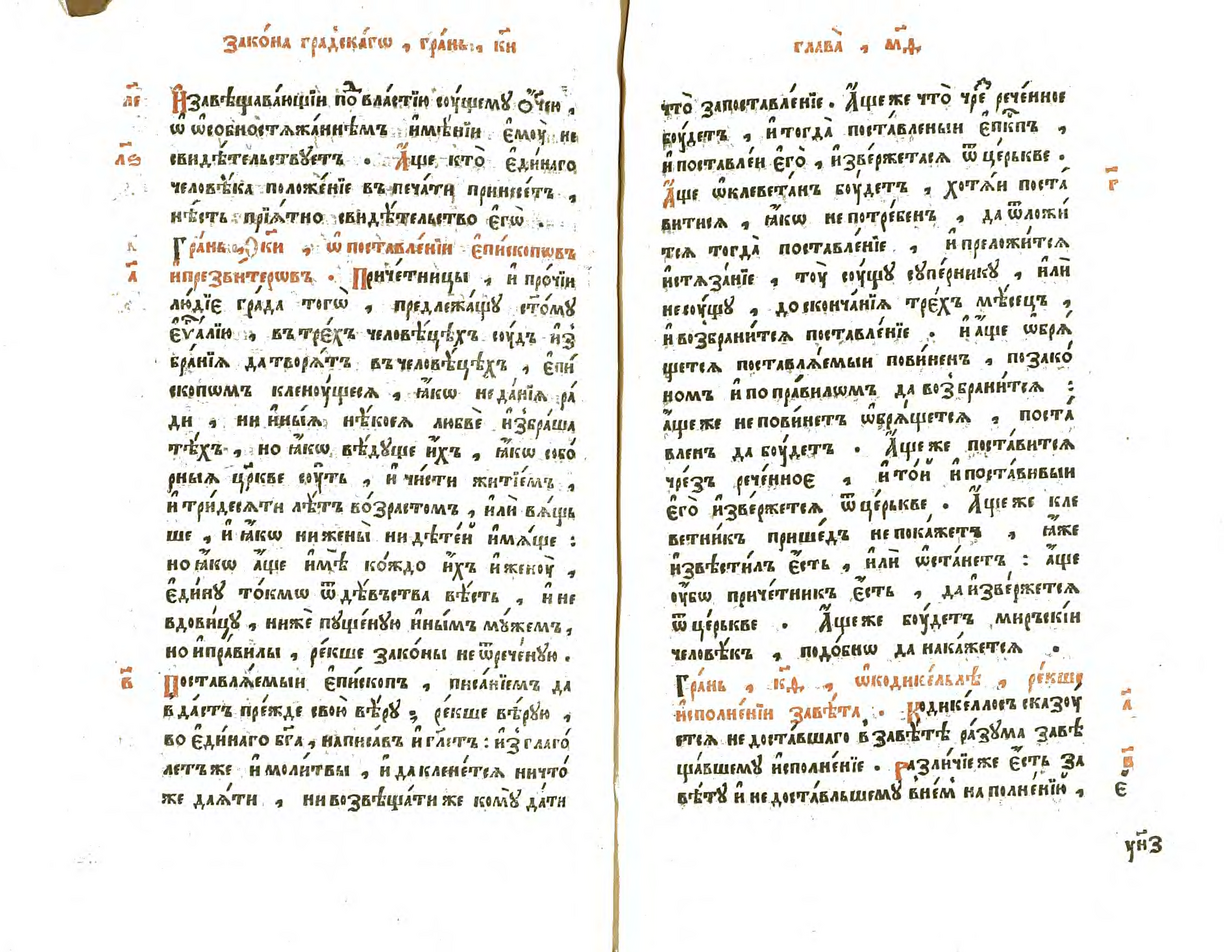 Зако́на градскагѡ , гра́нь , к҃и
л҃е И҆завѣщава́ющїи по̀ⷣ вла́стїю соу́щему ѻ҆́ч҃ею ,
ѡ҆ ѡ҆со́бностѧжа́ннѣмъ и҆мѣ́нїи є҆моу̀ не
л҃ѕ свидѣ́тельствꙋетъ . А҆́ще кто̀ є҆ди́наго
человѣ́ка положе́нїе въ печа́ти принесе́тъ ,
нѣ́сть прїѧ́тно свидѣ́тельство є҆гѡ̀ .
Гра́нь , к҃и , ѡ҆ поставле́нїи є҆пи́скоповъ
а҃ и҆презви́терѡвъ . Приче́тницы , и҆ про́чїи
лю́дїе гра́да тогѡ̀ , предлежа́щꙋ ст҃о́мꙋ
є҆ѵⷢ҇а́лїю , въ тре́хъ человѣ́цѣхъ соу́дъ и҆з̾
бра́нїѧ да творѧ́тъ въ человѣ́цѣхъ , є҆пи́
скопѡмъ клену́щесѧ , ꙗ҆́кѡ не да́нїѧ ра́
ди , ни и҆ны́ѧ нѣ́коеѧ любвѐ и҆збра́ша
тѣ́хъ , но ꙗ҆́кѡ вѣ́дꙋще и҆́хъ , ꙗ҆́кѡ собо́
рныѧ цр҃кве соу́ть , и҆ чи́сти житїе́мъ ,
и҆ три́десѧти лѣ́тъ во́зрастомъ , и҆лѝ вѧ́щь
ше , и҆ ꙗ҆́кѡ ни жены̀ ни дѣте́й и҆мꙋ́ще :
но ꙗ҆́кѡ а҆́ще и҆мѣ̀ ко́ждо и҆́хъ и҆ женоу̀ ,
є҆ди́нꙋ то́кмѡ ѿ дѣ́въства вѣ́сть , и҆ не
вдови́цꙋ , нижѐ пꙋще́ную и҆ны́мъ мꙋ́жемъ ,
но и҆ пра́вилы , ре́кше зако́ны не ѿрече́нꙋю .
в҃ Поставлѧ́емыи є҆пи́скопъ , писа́нїемъ да
в̾да́стъ пре́жде свою̀ вѣ́рꙋ ; ре́кше вѣ́рꙋю ,
во є҆ди́наго бг҃а , написа́въ и҆ гл҃етъ : и҆з̾глаго́
летъ же и҆ моли́твы , и҆ да клене́тсѧ ничто́
же даѧ́ти , ни возвѣща́ти же комꙋ̀ да́ти
глава̀ , м҃д ,
что̀ за поставле́нїе . А҆́ще же что̀ чре́ⷥ рече́нное
боу́детъ , и҆ тогда̀ поста́вленыи є҆пⷭ҇кпъ ,
и҆ поставле́и є҆го̀ , и҆зве́ржетасѧ ѿ це́рькве .
г҃ А҆́ще ѡ҆клевета́нъ боу́детъ , хотѧ́и поста́
витисѧ , ꙗ҆́кѡ не потре́бенъ , да ѿложи́
тсѧ тогда̀ поставле́нїе , и҆ преложи́тсѧ
и҆стѧза́нїе , тоу̀ соу́щꙋ сꙋпе́рникꙋ , и҆лѝ
не соу́щꙋ , до сконча́нїѧ тре́хъ мѣ́сецъ ,
и҆ возбрани́тсѧ поставле́нїе . и҆ а҆́ще ѡ҆брѧ́
щетсѧ поставлѧ́емыи пови́ненъ , по зако́
номъ и҆ по пра́вилѡмъ да возбрани́тсѧ :
а҆́ще же не пови́нетъ ѡ҆брѧ́щетсѧ , поста́
вленъ да боу́детъ . А҆́ще же поста́витсѧ
чре́зъ рече́нное , и҆ то́й и҆ поста́вивыи
є҆го̀ и҆зве́ржетсѧ ѿ це́рькве . А҆́ще же кле
ветни́къ прише́дъ не пока́жетъ , ꙗ҆́же
и҆звѣсти́лъ є҆́сть , и҆лѝ ѡ҆ста́нетъ : а҆́ще
оу҆́бѡ приче́тник є҆́сть , да и҆зве́ржетсѧ
ѿ це́рькве . А҆́ще же боу́детъ ми́рьскїи
человѣ́къ , подо́бнѡ да нака́жетсѧ .
Гра́нь , к҃д , ѡ҆ кодике́льлѣ , ре́кше
а҃ и҆сполне́нїи завѣ́та . Кодике́ллосъ сказоу́
етсѧ недоста́вшаго в̾ завѣ́тѣ ра́зꙋма завѣ
в҃ ща́вшемꙋ и҆сполне́нїе . Разли́чїе же є҆́сть за
вѣ́тꙋ и҆ недоста́вльшемꙋ в̾не́м наполне́нїю , є҃
ун҃з